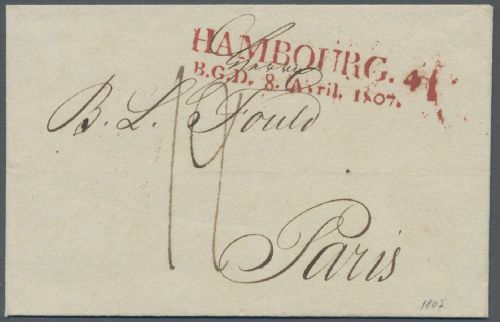 HAMBOURG. 4
B.G.D. 8. Avril. 1807.
B. L. Fould
11
Paris
1807